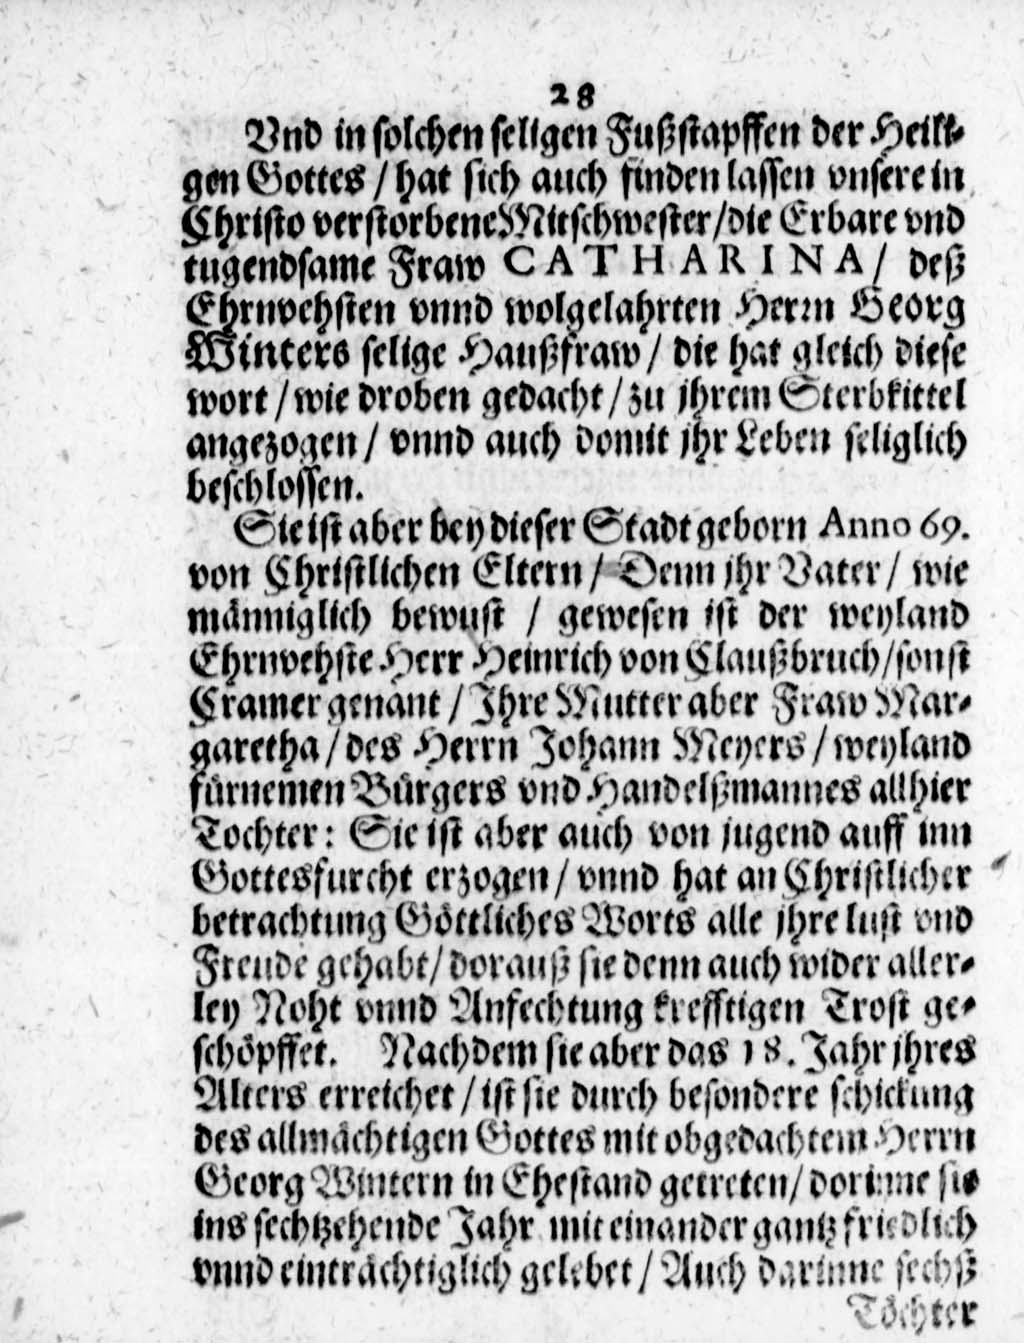 28
Vnd in solchen seligen Fußstapffen der Heili-
gen Gottes / hat sich auch finden lassen vnsere in
Christo verstorbene Mitschwester / die Erbare vnd
tugendsame Fraw CATHARINA / deß
Ehrnvehsten vnnd wolgelahrten Herrn Georg
Winters selige Haußfraw / die hat gleich diese
wort / wie droben gedacht / zu jhrem Sterbkittel
angezogen / vnnd auch domit jhr Leben seliglich
beschlossen.
Sie ist aber bey dieser Stadt geborn Anno 69.
von Christlichen Eltern / Denn jhr Vater / wie
männiglich bewust / gewesen ist der weyland
Ehrnvehste Herr Heinrich von Claußbruch / sonst
Cramer genant / Ihre Mutter aber Fraw Mar-
garetha / des Herrn Johann Meyers / weyland
fürnemen Bürgers vnd Handelßmannes allhier
Tochter: Sie ist aber auch von jugend auff inn
Gottesfurcht erzogen / vnnd hat an Christlicher
betrachtung Göttliches Worts alle jhre lust vnd
Freude gehabt / dorauß sie denn auch wider aller-
ley Noht vnnd Anfechtung krefftigen Trost ge-
schöpffet. Nachdem sie aber das 18. Jahr jhres
Alters erreichet / ist sie durch besondere schickung
des allmächtigen Gottes mit obgedachtem Herrn
Georg Wintern in Ehestand getreten / dorinne sie
ins sechtzehende Jahr mit einander gantz friedlich
vnnd einträchtiglich gelebet / Auch darinne sechß
Töchter